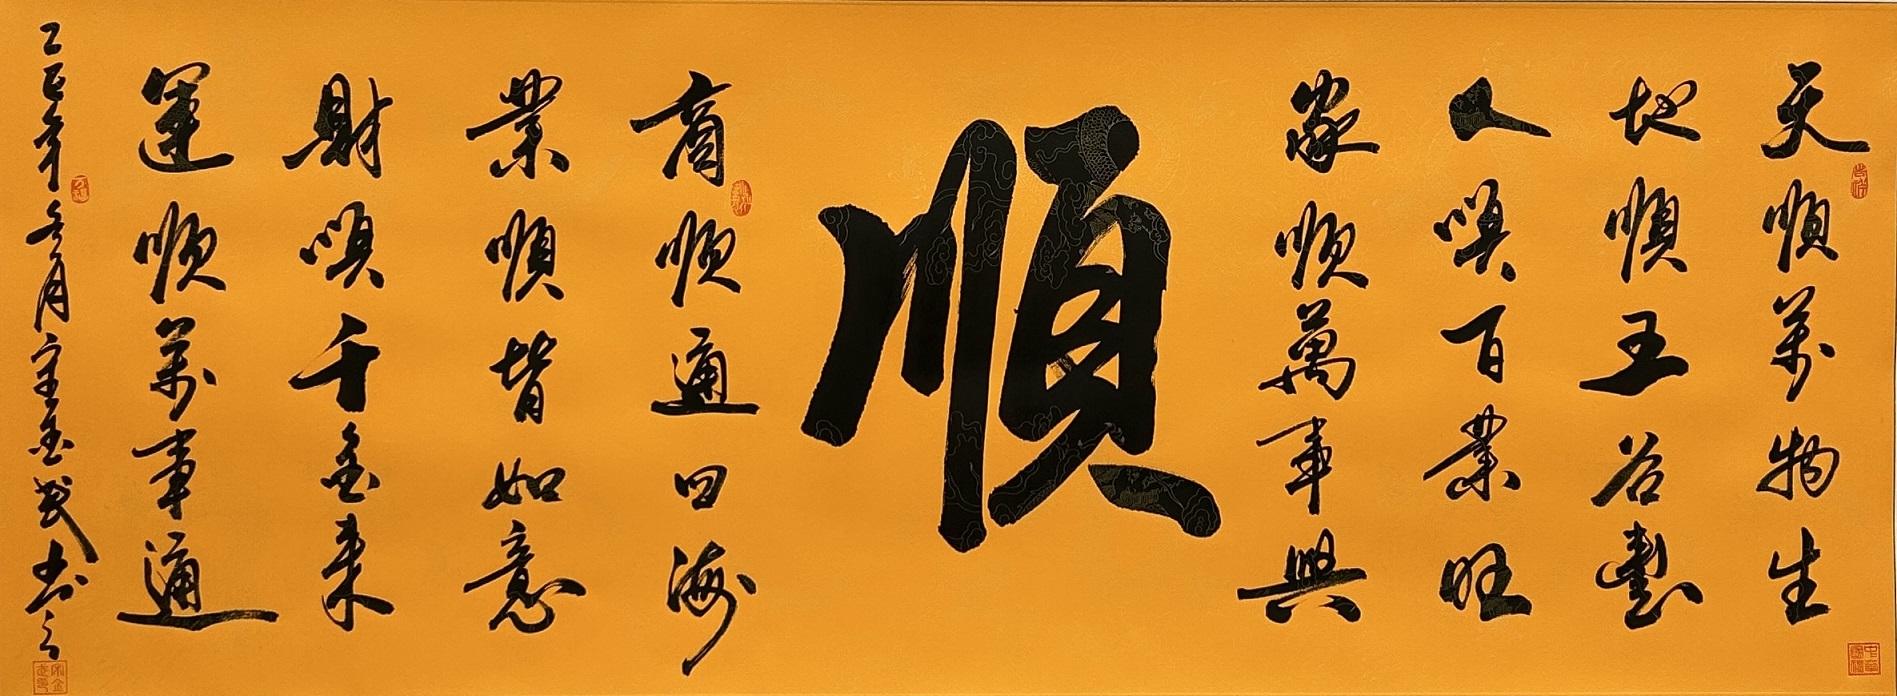 天順萬物生
地順五谷豐
人順百業旺
家順萬事興
順
商順通四海
業順皆如意
財順千金來
運順萬事通
乙巳年冬月宋金武書之